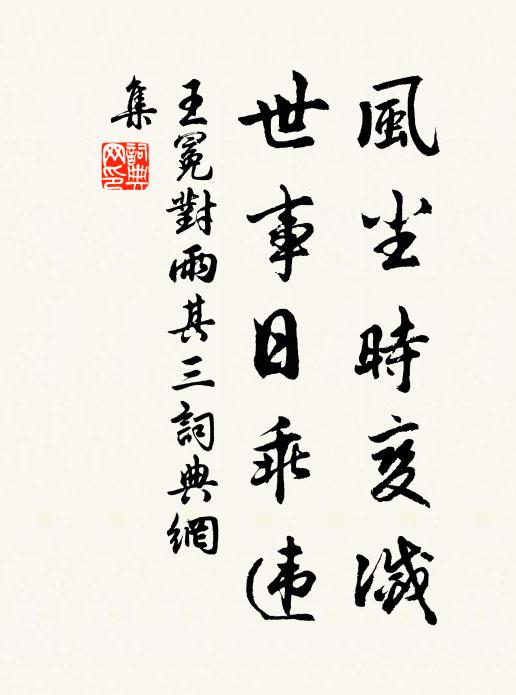 風尘時变滅
世事日乖违
王冕對雨其三詞典網
集
詞典
网印